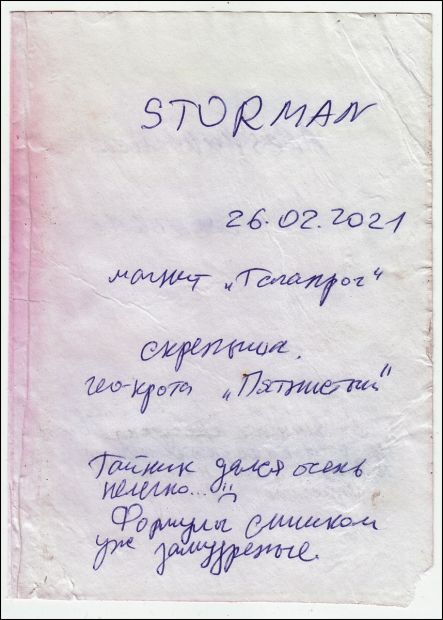 STORMAN
26.02.2021
магнит „Галапрог“
скрепыши.
гео-крота „Пятнистый"
Тайник дался очень
нелегко...
Формулы слишком
уж замудреные.